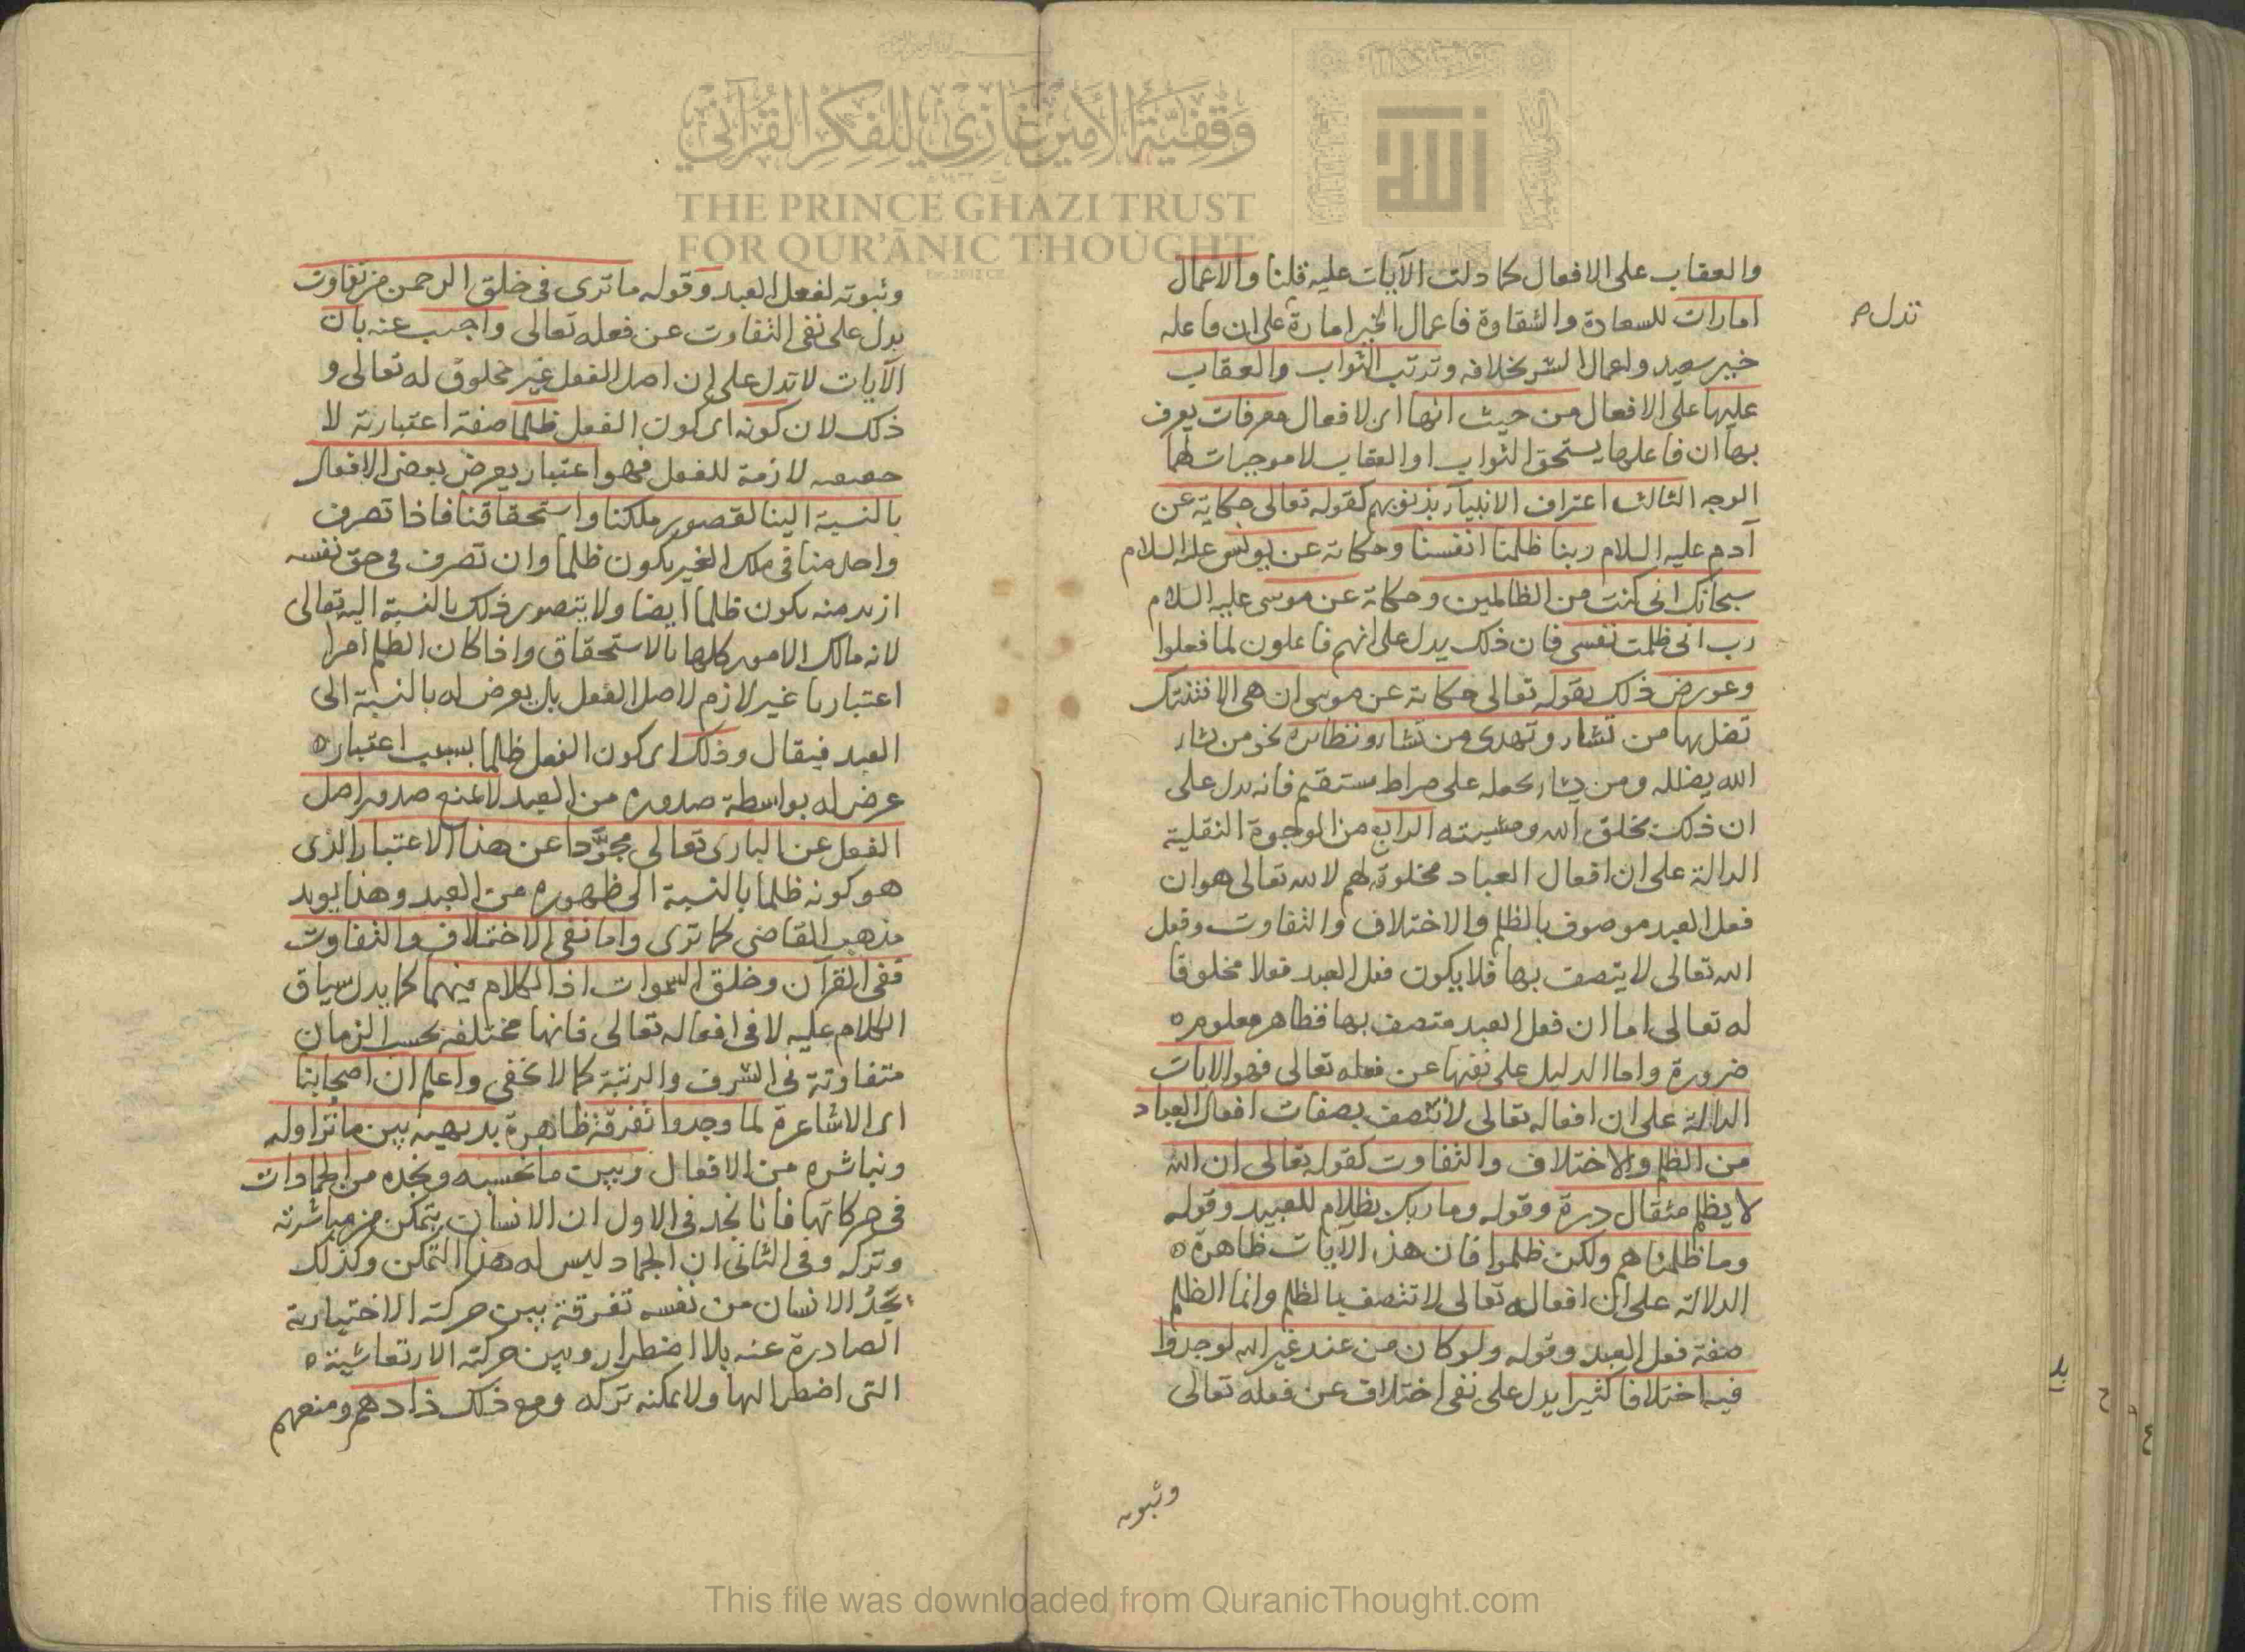 والعقاب على الافعال كما دلت الآيات عليه قلنا والاعمال
امارات للسعادة والشقاوة فاعمال الخير امارة على ان فاعله
تدل م
خير سعيد ولعمال الشر بخلافه وترتب الثواب والعقاب
عليها على الافعال من حيث انها اى لافعال معرفات يعرف
بها ان فاعلها يستحق الثواب او العقاب لا موجبات لهما
الوجه الثالث اعتراف الانبياء بذنوبهم كقوله تعالى حكاية عن
آدم عليه السلام ربنا ظلمنا انفسنا وحكاية عن يونس عليه السلام
سبحانك انى كنت من الظالمين وحكاية عن موسى عليه السلام
رب انى ظلمت نفسى فان ذلك يدل على انهم فاعلون لما فعلوا
وعورض ذلك بقوله تعالى حكاية عن موسى ان هى الا فتنتك
تضل بها من تشاء وتهدى من تشاء ونظائره نحو من يشاء
الله يضلله ومن يشاء يجعله على صراط مستقيم فانه يدل على
ان ذلك بخلق الله ومشيته الرابع من الوجوه النقلية
الدالة على ان افعال العباد مخلوقة لهم لا لله تعالى هو ان
فعل العبد موصوف بالظلم والاختلاف والتفاوت وفعل
الله تعالى لا يتصف بها فلا يكون فعل العبد فعلا مخلوقا
له تعالى اما ان فعل العبد متصف بها فظاهر معلوم ه
ضرورة واما الدليل على نفيها عن فعله تعالى فهو الايات
الدالة على ان افعاله تعالى لا تتصف بصفات افعال العباد
من الظلم والاختلاف والتفاوت كقوله تعالى ان الله
لا يظلم مثقال درة وقوله وما ربك بظلام للعبيد وقوله
وما ظلمناهم ولكن ظلموا فان هذه الآيات ظاهرة ه
الدلالة على ان افعاله تعالى لا تتصف بالظلم وانما الظلم
صفة فعل العبد وقوله ولو كان من عند غير الله لوجدوا
فيه اختلافا كثيرا يدل على نفى اختلاف عن فعله تعالى
وثبوته
وثبوته لفعل العبد وقوله ما ترى فى خلق الرحمن من تفاوت
يدل على نفى التفاوت عن فعله تعالى واجيب عنه بان
الآيات لا تدل على ان اصل الفعل غير مخلوق له تعالى و
ذلك لان كونه اى كون الفعل ظلما صفة اعتبارية لا
حقيقيه لازمة للفعل فهو اعتبار يعرض بعض الافعال
بالنسبة الينا لقصور ملكنا واستحقاقنا فاذا تصرف
واحد منا فى ملك الغير يكون ظلما وان تصرف فى حق نفسه
ازيد منه يكون ظلما ايضا ولا يتصور ذلك بالنسبة اليه تعالى
لانه مالك الامور كلها بالاستحقاق واذا كان الظلم امرا
اعتباريا غير لازم لاصل الفعل بل يعرض له بالنسبة الى
العبد فيقال وذلك اى كون الفعل ظلما بسبب اعتبار ه
عرض له بواسطة صدوره من العبد لا يمنع صدور اصل
الفعل عن البارى تعالى مجردا عن هذا الاعتبار الذى
هو كونه ظلما بالنسبة الى ظهوره من العبد وهذا يويد
مذهب القاضى كما ترى واما نفى الاختلاف والتفاوت
ففى القرآن وخلق السموات اذ الكلام فيهما كما يدل سياق
الكلام عليه لا فى افعاله تعالى فانها مختلفة بحسب الزمان
متفاوتة فى الشرف والرتبة كما لا يخفى واعلم ان اصحابنا
اى الاشاعرة لما وجدوا تفرقة ظاهرة بديهيه بين ما نزاوله
ونباشره من الافعال وبين ما نحسبه ونجده من الجمادات
فى حركاتها فانا نجد فى الاول ان الانسان يتمكن من مباشرته
وتركه وفى الثانى ان الجماد ليس له هذا التمكن وكذلك
يجد الانسان من نفسه تفرقة بين حركته الاختيارية
الصادرة عنه بلا اضطرار وبين حركته الارتعاشية ه
التى اضطر اليها ولا يمكنه تركه ومع ذلك ذادهم ومنعهم
وقفية الأمير غازي للفكر القرآني
THE PRINCE GHAZI TRUST
FOR QUR'ĀNIC THOUGHT
الله
This file was downloaded from QuranicThought.com